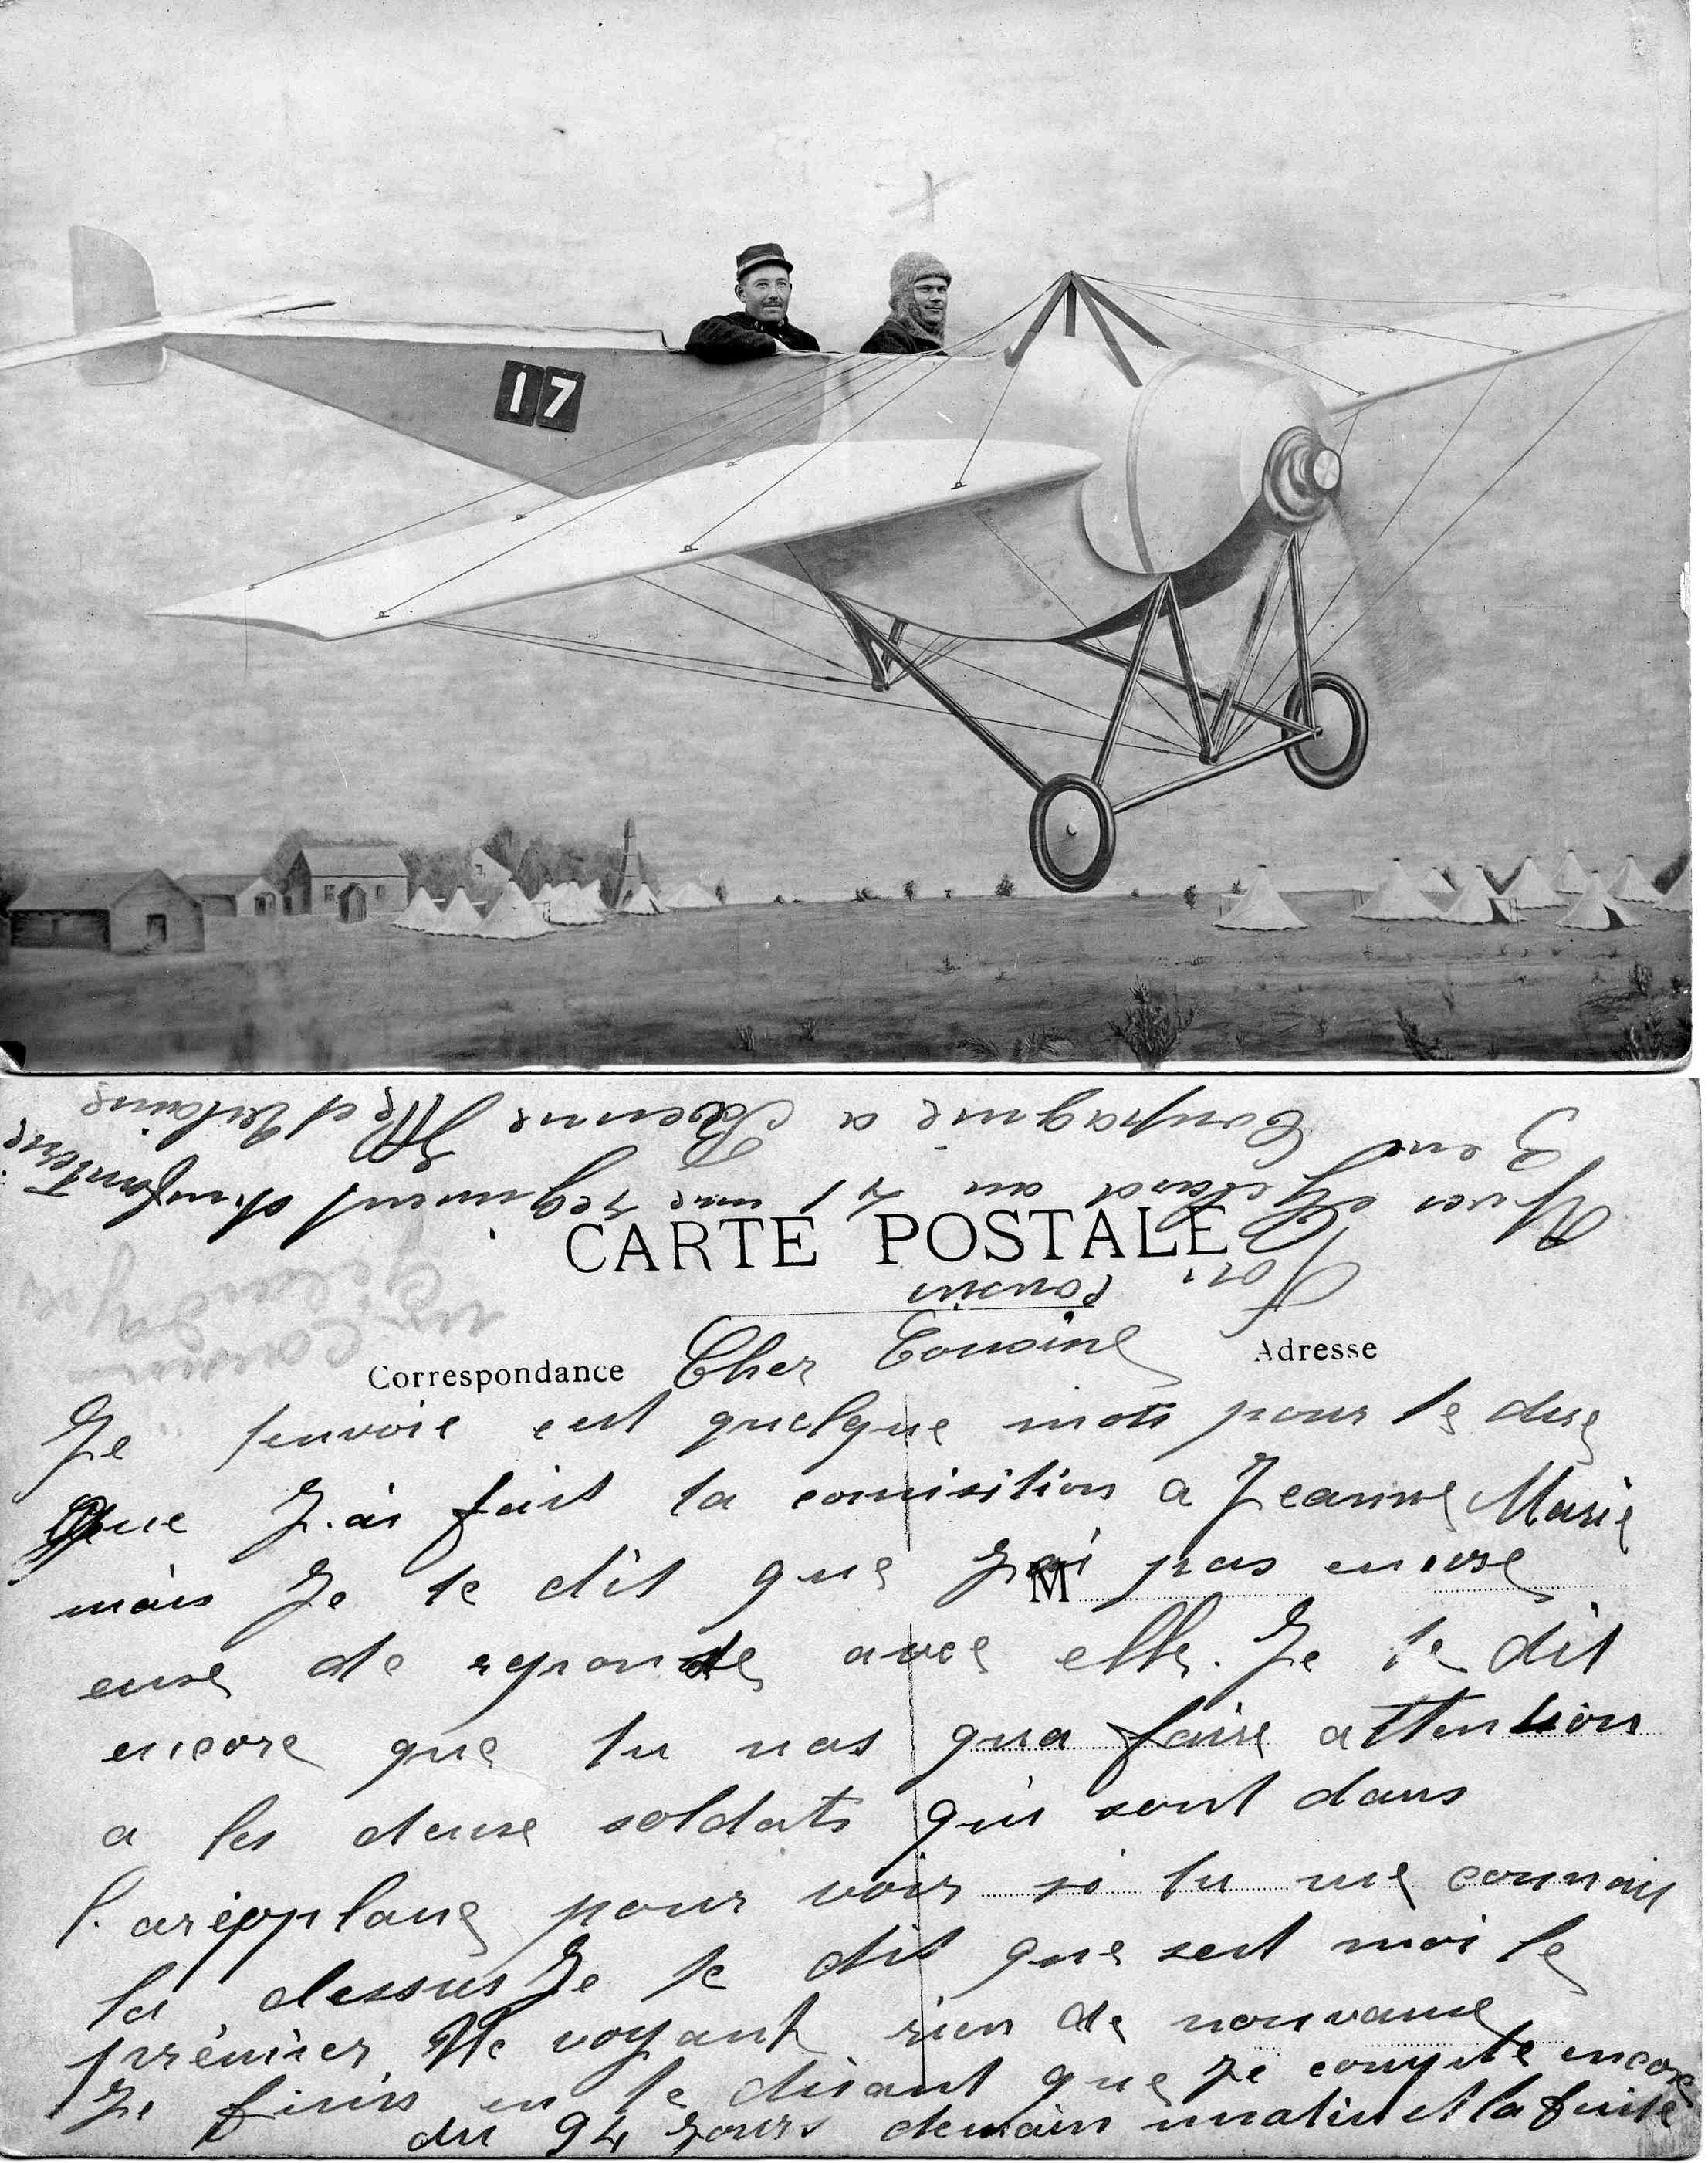 17
CARTE POSTALE
Correspondance
Adresse
M
Cher Cousine
Je t'envoie cest quelque mots pour te dire
que J.ai fait ta comisition a Jeanne Marie
mais Je te dit que J'ai pas encore
euse de reponse avec elle. Je te dit
encore que tu nas qua faire attention
a les deuse soldats qui sont dans
l'areopplane pour voir si tu me connais
la dessus Je te dit que sest moi le
prémier Ne voyant rien de nouvaue
Je finis en te disant que Je compte encore
du 94 Jours demain matin et la fuite
Ton cousin
Yves au 71 eme regiment d'infanterie
3 eme Compagnie a